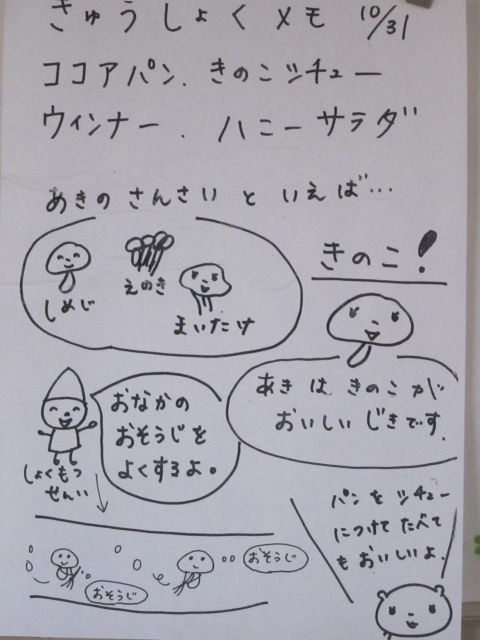 きゅうしょくメモ 10/31
ココアパン、きのこシチュー
ウィンナー、ハニーサラダ
あきのさんさいといえば…
きのこ!
しめじ
えのき
まいたけ
あきは、きのこが
おいしいじきです。
おなかの
おそうじを
よくするよ。
しょくもつ
せんい
おそうじ
おそうじ
パンをシチュー
につけてたべて
もおいしいよ。